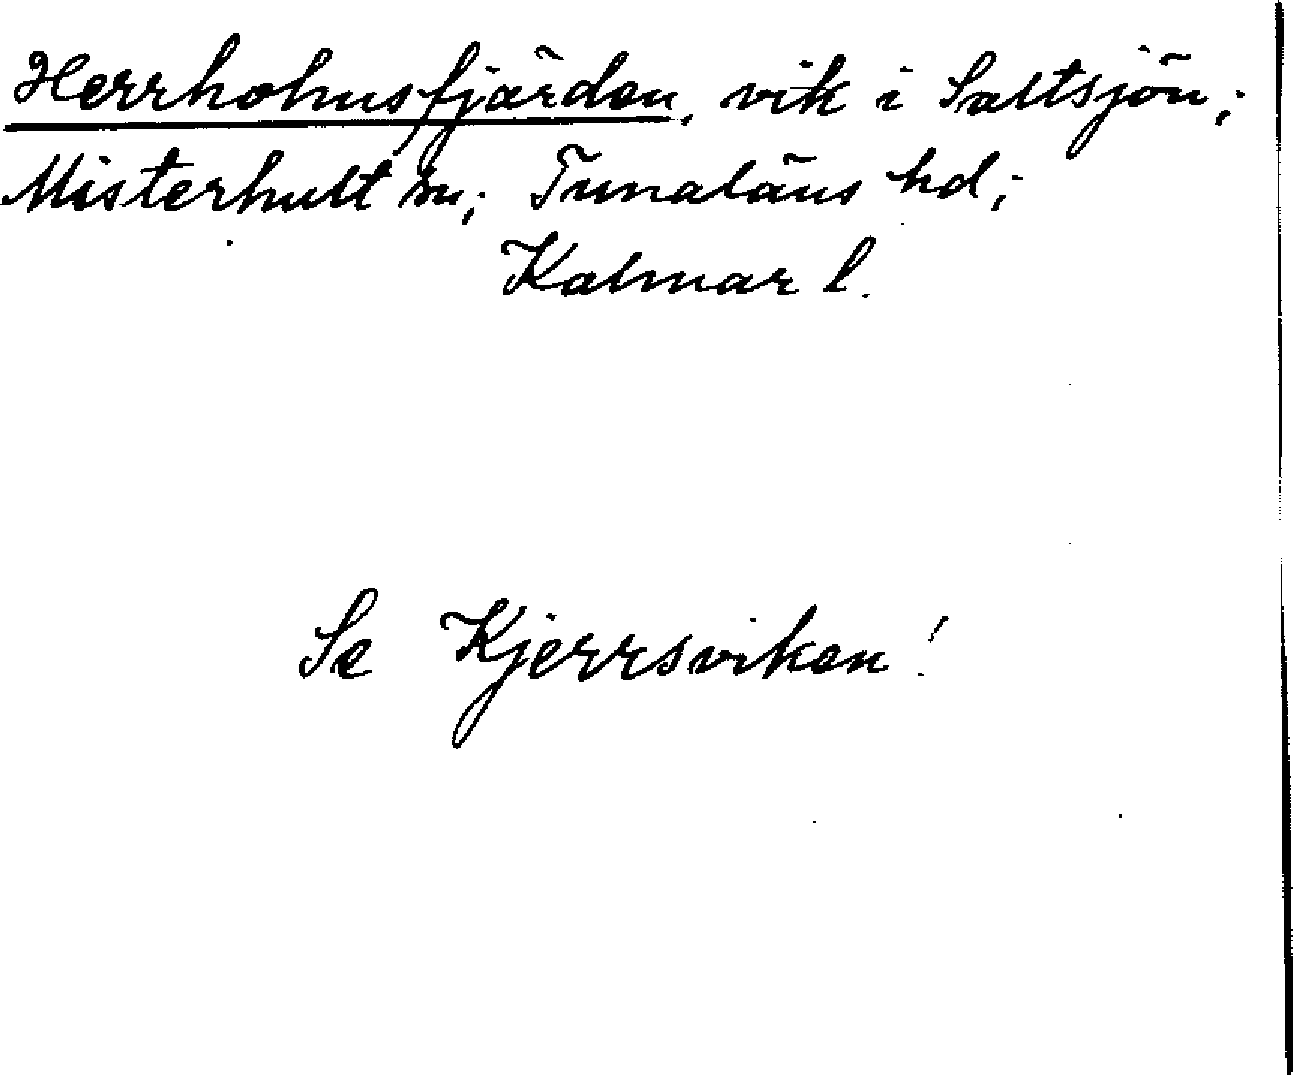 Herrholmsfjärden, vik i Saltsjön;
Misterhult sn; Tunaläns hd;
Kalmar l.
Se Kjerrsviken!